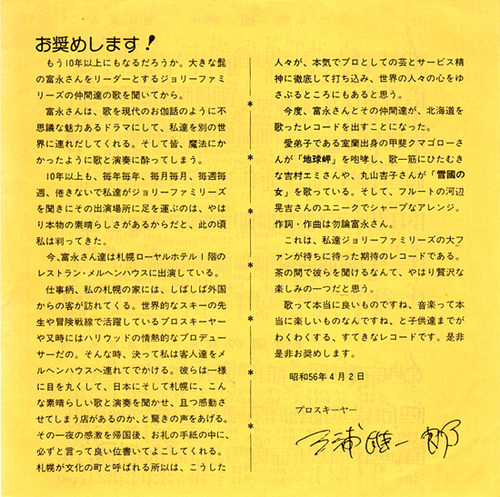 お奨めします!
もう10年以上にもなるだろうか。大きな髭
の富永さんをリーダーとするジョリーファミ
リーズの仲間達の歌を聞いてから。
富永さんは、歌を現代のお伽話のように不
思議な魅力あるドラマにして、私達を別の世
界に連れだしてくれる。そして皆、魔法にか
かったように歌と演奏に酔ってしまう。
10年以上も、毎年毎年、毎月毎月、毎週毎
週、倦きないで私達がジョリーファミリーズ
を聞きにその出演場所に足を運ぶのは、やは
り本物の素晴らしさがあるからだと、此の頃
私は判ってきた。
今、富永さん達は札幌ローヤルホテル1階の
レストラン・メルヘンハウスに出演している。
仕事柄、私の札幌の家には、しばしば外国
からの客が訪れてくる。世界的なスキーの先
生や冒険戦線で活躍しているプロスキーヤー
や又時にはハリウッドの情熱的なプロデュー
サーだの。そんな時、決って私は客人達をメ
ルヘンハウスへ連れてでかける。彼らは一様
に目を丸くして、日本にそして札幌に、こん
な素晴らしい歌と演奏を聞かせ、且つ感動さ
せてしまう店があるのか、と驚きの声をあげる。
その一夜の感激を帰国後、お礼の手紙の中に、
必ずと言って良い位書いてよこしてくれる。
札幌が文化の町と呼ばれる所以は、こうした
人々が、本気でプロとしての芸とサービス精
神に徹底して打ち込み、世界の人々の心をゆ
さぶるところにもあると思う。
今度、富永さんとその仲間達が、北海道を
歌ったレコードを出すことになった。
愛弟子である室蘭出身の甲斐クマゴローさ
んが「地球岬」を咆哮し、歌一筋にひたむき
な吉村エミさんや、丸山杏子さんが「雪國の
女」を歌っている。そして、フルートの河辺
晃吉さんのユニークでシャープなアレンジ。
作詞・作曲は勿論富永さん。
これは、私達ジョリーファミリーズの大フ
ァンが待ちに待った期待のレコードである。
茶の間で彼らを聞けるなんて、やはり贅沢な
楽しみの一つだと思う。
歌って本当に良いものですね、音楽って本
当に楽しいものなんですね、と子供達までが
わくわくする、すてきなレコードです。是非
是非お奨めします。
昭和56年4月2日
プロスキーヤー
三浦雄一郎